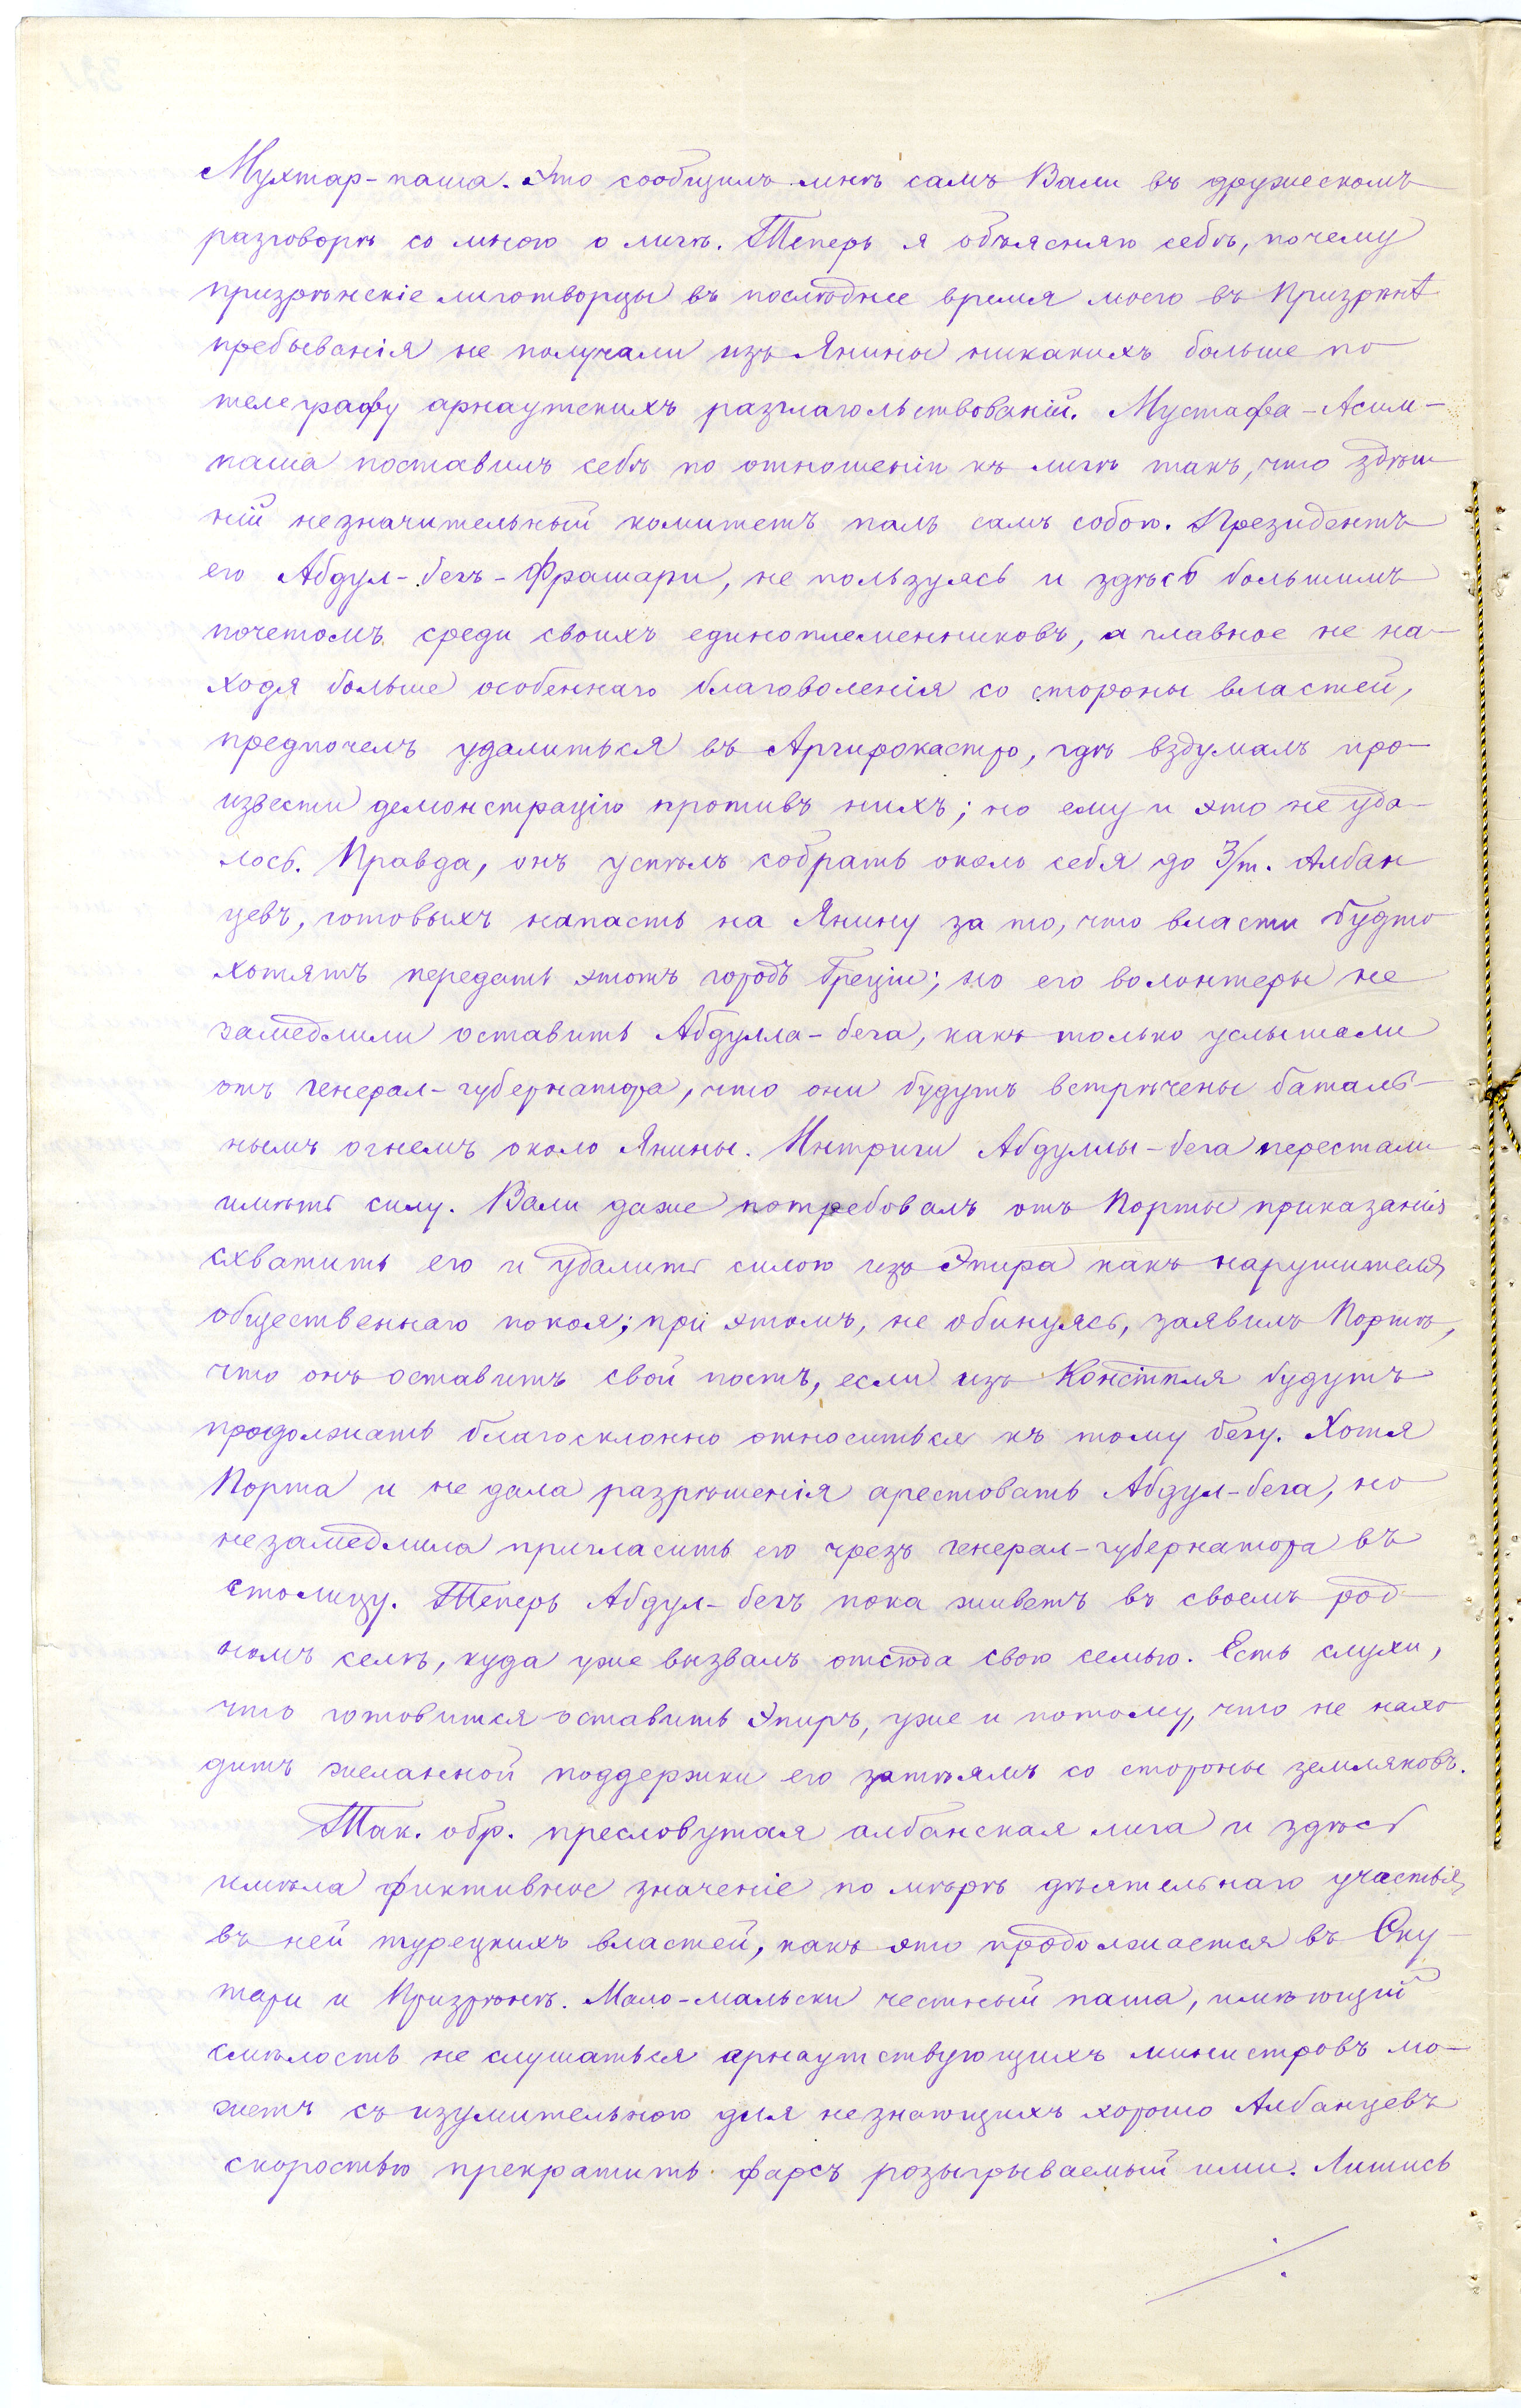 Мухтар-паша. Это сообщилъ мнѣ самъ Вали въ дружескомъ
разговорѣ со мною о лигѣ. Теперь я объясняю себѣ, почему
призрѣнскіе лиготворцы въ послѣднее время моего въ Призрѣнѣ
пребыванія не получали изъ Янины никакихъ больше по
телеграфу арнаутскихъ разглагольствованій. Мустафа-Асим-
паша поставилъ себя по отношеніи къ лигѣ такъ, что здѣш
ній незначительный комитетъ палъ самъ собою. Президентъ
его Абдул-бегъ-Фрашари, не пользуясь и здѣсь большимъ
почетомъ среди своихъ единоплеменниковъ, а главное не на-
ходя больше особеннаго благоволенія со стороны властей,
предпочелъ удалиться въ Аргирокастро, гдѣ вздумалъ про-
извести демонстрацію противъ нихъ; но ему и это не уда-
лось. Правда, онъ успѣлъ собрать около себя до 3/т. Албан
цевъ, готовыхъ напасть на Янину за то, что власти будто
хотятъ передать этотъ городъ Греціи; но его волонтеры не
замедлили оставить Абдулла-бега, какъ только услышали
отъ генерал-губернатора, что они будутъ встрѣчены баталь-
нымъ огнемъ около Янины. Интриги Абдуллы-бега перестали
имѣть силу. Вали даже потребовалъ отъ Порты приказанія
схватить его и удалить силою изъ Эпира какъ нарушителя
общественнаго покоя; при этомъ, не обинуясь, заявилъ Портѣ,
что онъ оставитъ свой постъ, если изъ Констпля будутъ
продолжать благосклонно относиться къ тому бегу. Хотя
Порта и не дала разрѣшенія арестовать Абдул-бега, но
незамедлила пригласить его чрезъ генерал-губернатора въ
столицу. Теперь Абдул-бегъ пока живетъ въ своемъ род
номъ селѣ, куда уже вызвалъ отсюда свою семью. Есть слухи,
что готовится оставить Эпиръ, уже и потому, что не нахо
дитъ желанной поддержки его затѣямъ со стороны земляковъ.
Так. обр. пресловутая албанская лига и здѣсь
имѣла фиктивное значеніе по мѣрѣ дѣятельнаго участья
въ ней турецкихъ властей, какъ это продолжается въ Ску-
тари и Призрѣнѣ. Мало-мальски честный паша, имѣющій
смѣлость не слушаться арнаутствующихъ министровъ мо-
жетъ съ изумительною для незнающихъ хорошо Албанцевъ
скоростью прекратить фарсъ розыгрываемый ими. Лишись